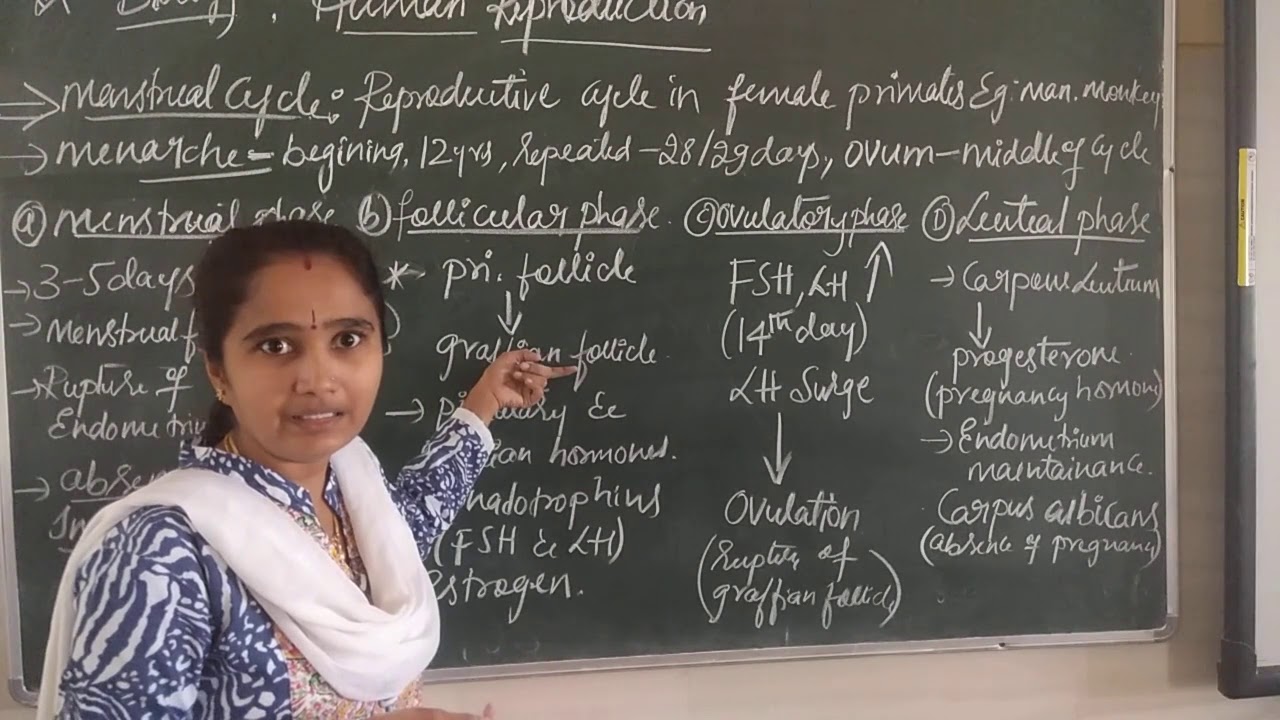 Human Reproduction
Menstrual Cycle: Reproductive cycle in female primates Eg: man. monkey
→ menarche - begining, 12 yrs, repeated - 28/29 days, Ovum - middle of cycle
ⓐ menstrual phase
→ 3-5 days
→ menstrual
→ Rupture of
→
ⓑ follicular phase
* pri. follicle
↓
graffian follicle
→ &
hormones.
(FSH & LH)
estrogen.
ⓒ Ovulatory phase
FSH, LH ↑
(14th day)
LH Surge
↓
Ovulation
(rupture of
graffian follicle)
Ⓓ Luteal phase
→ Carpous Leutium
↓
progesterone
(pregnancy hormone)
→ Endometrium
maintainance.
Carpus albicans
(absence of pregnancy)